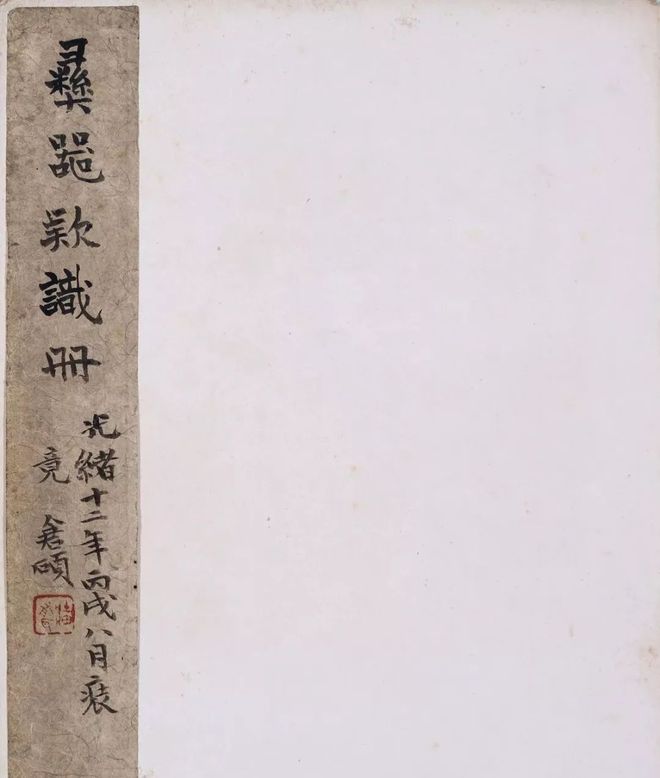 彝器欵識冊
光緒十二年丙戌八月裝
竟 倉碩